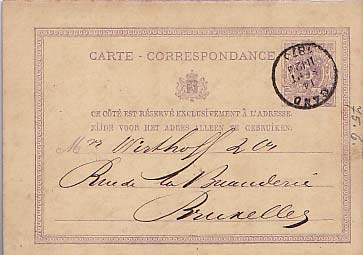 CARTE - CORRESPONDANCE
GAND
CE CÔTÉ EST RÉSERVÉ EXCLUSIVEMENT À L'ADRESSE.
ZIJDE VOOR HET ADRES ALLEEN TE GEBRUIKEN.
Mrs Werthoff & Co
Rue de la Buanderie
Bruxelles
25.6